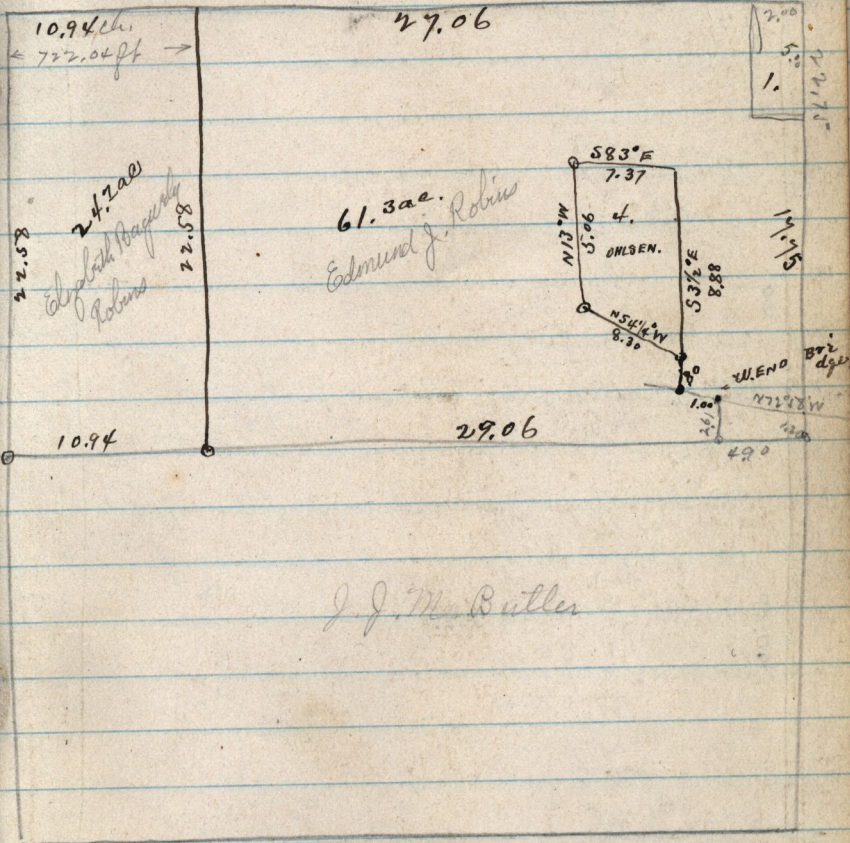 10.94 ch.
722.04 ft
27.06
2.00
5.20
1.
22.75
24.7 ac
Elizabeth
Robins
22.58
22.58
61.3 ac.
Edmund J. Robins
S 83° E
7.37
N 13° W
5.06
4.
OHLSEN.
S 3½° E
8.88
N 54¼° W
8.30
17.75
W. END Bri
dge
1.00
4.90
10.94
29.06
J. J. M. Butler